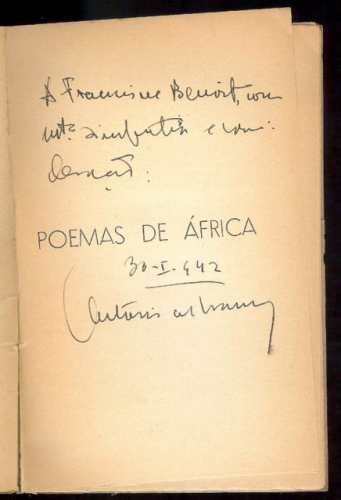 A Francine Benoit, com
mta simpatia e consi-
deração.
POEMAS DE ÁFRICA
30-I-942
António de Navarro